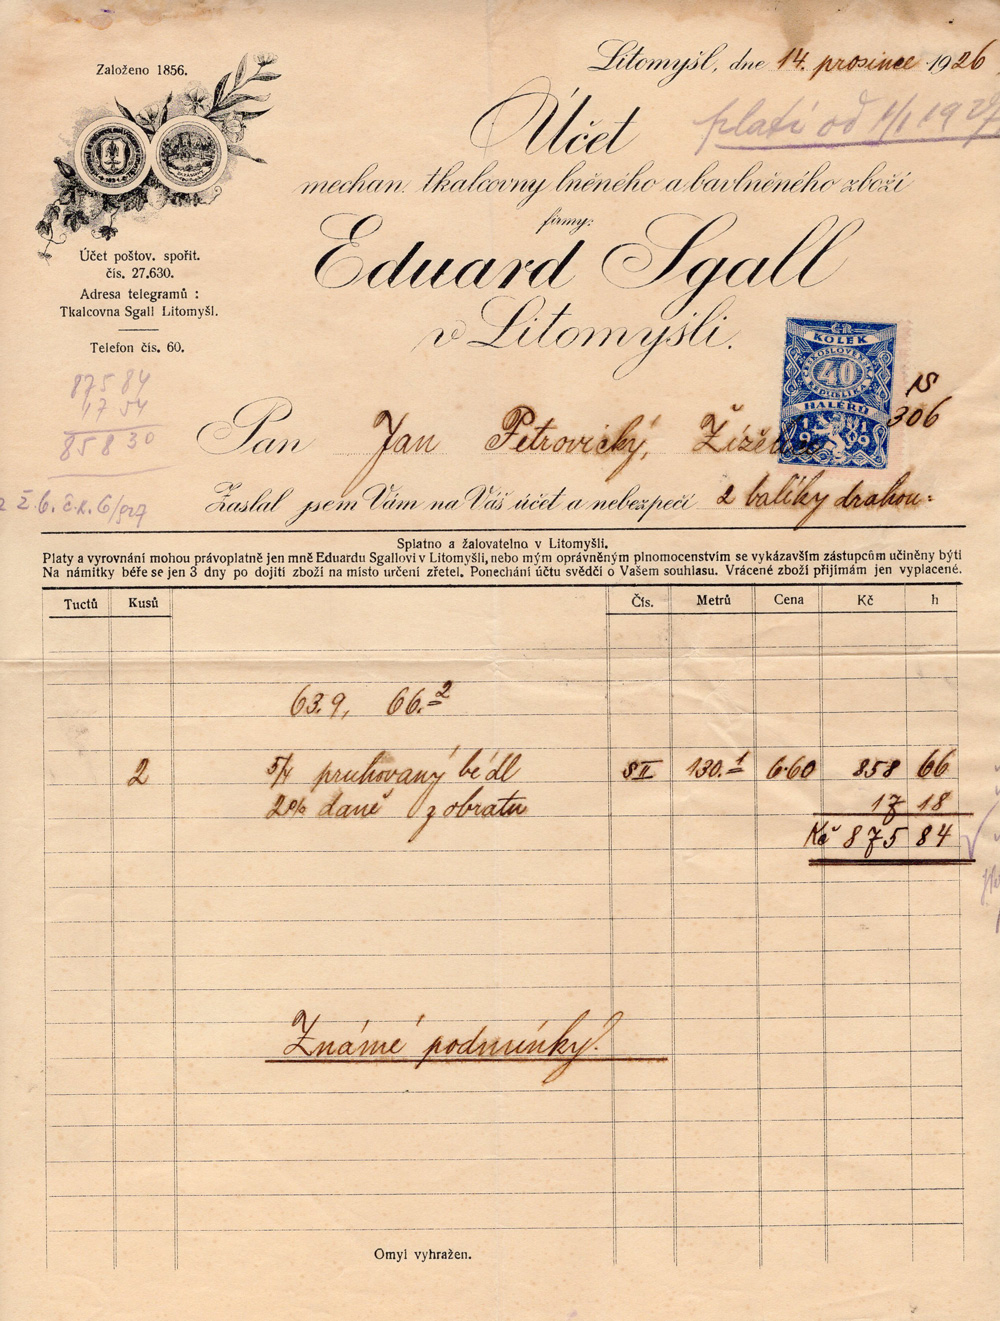 Založeno 1856.
Litomyšl, dne 14. prosince 1926
Účet
platí od 1/1 1927
mechan. tkalcovny lněného a bavlněného zboží
firmy:
Eduard Sgall
v Litomyšli.
Účet poštov. spořit.
čís. 27.630.
Adresa telegramů :
Tkalcovna Sgall Litomyšl.
Telefon čís. 60.
KOLEK
ČESKOSLOVENSKÁ
40
REPUBLIKA
HALÉŘŮ
1919
875 84
17 54
858 30
IS
306
Pan Jan Petrovický,
Zaslal jsem Vám na Váš účet a nebezpečí 2 balíky drahou:
Splatno a žalovatelno v Litomyšli.
Platy a vyrovnání mohou právoplatně jen mně Eduardu Sgallovi v Litomyšli, nebo mým oprávněným plnomocenstvím se vykázavším zástupcům učiněny býti
Na námitky béře se jen 3 dny po dojití zboží na místo určení zřetel. Ponechání účtu svědčí o Vašem souhlasu. Vrácené zboží přijímám jen vyplacené.
Tuctů Kusů Čís. Metrů Cena Kč h
63.9, 66.2
2 5/4 pruhovaný bédl SII 130.1 6·60 858 66
2% daně z obratu 17 18
Kč 875 84
Známé podmínky!
Omyl vyhražen.